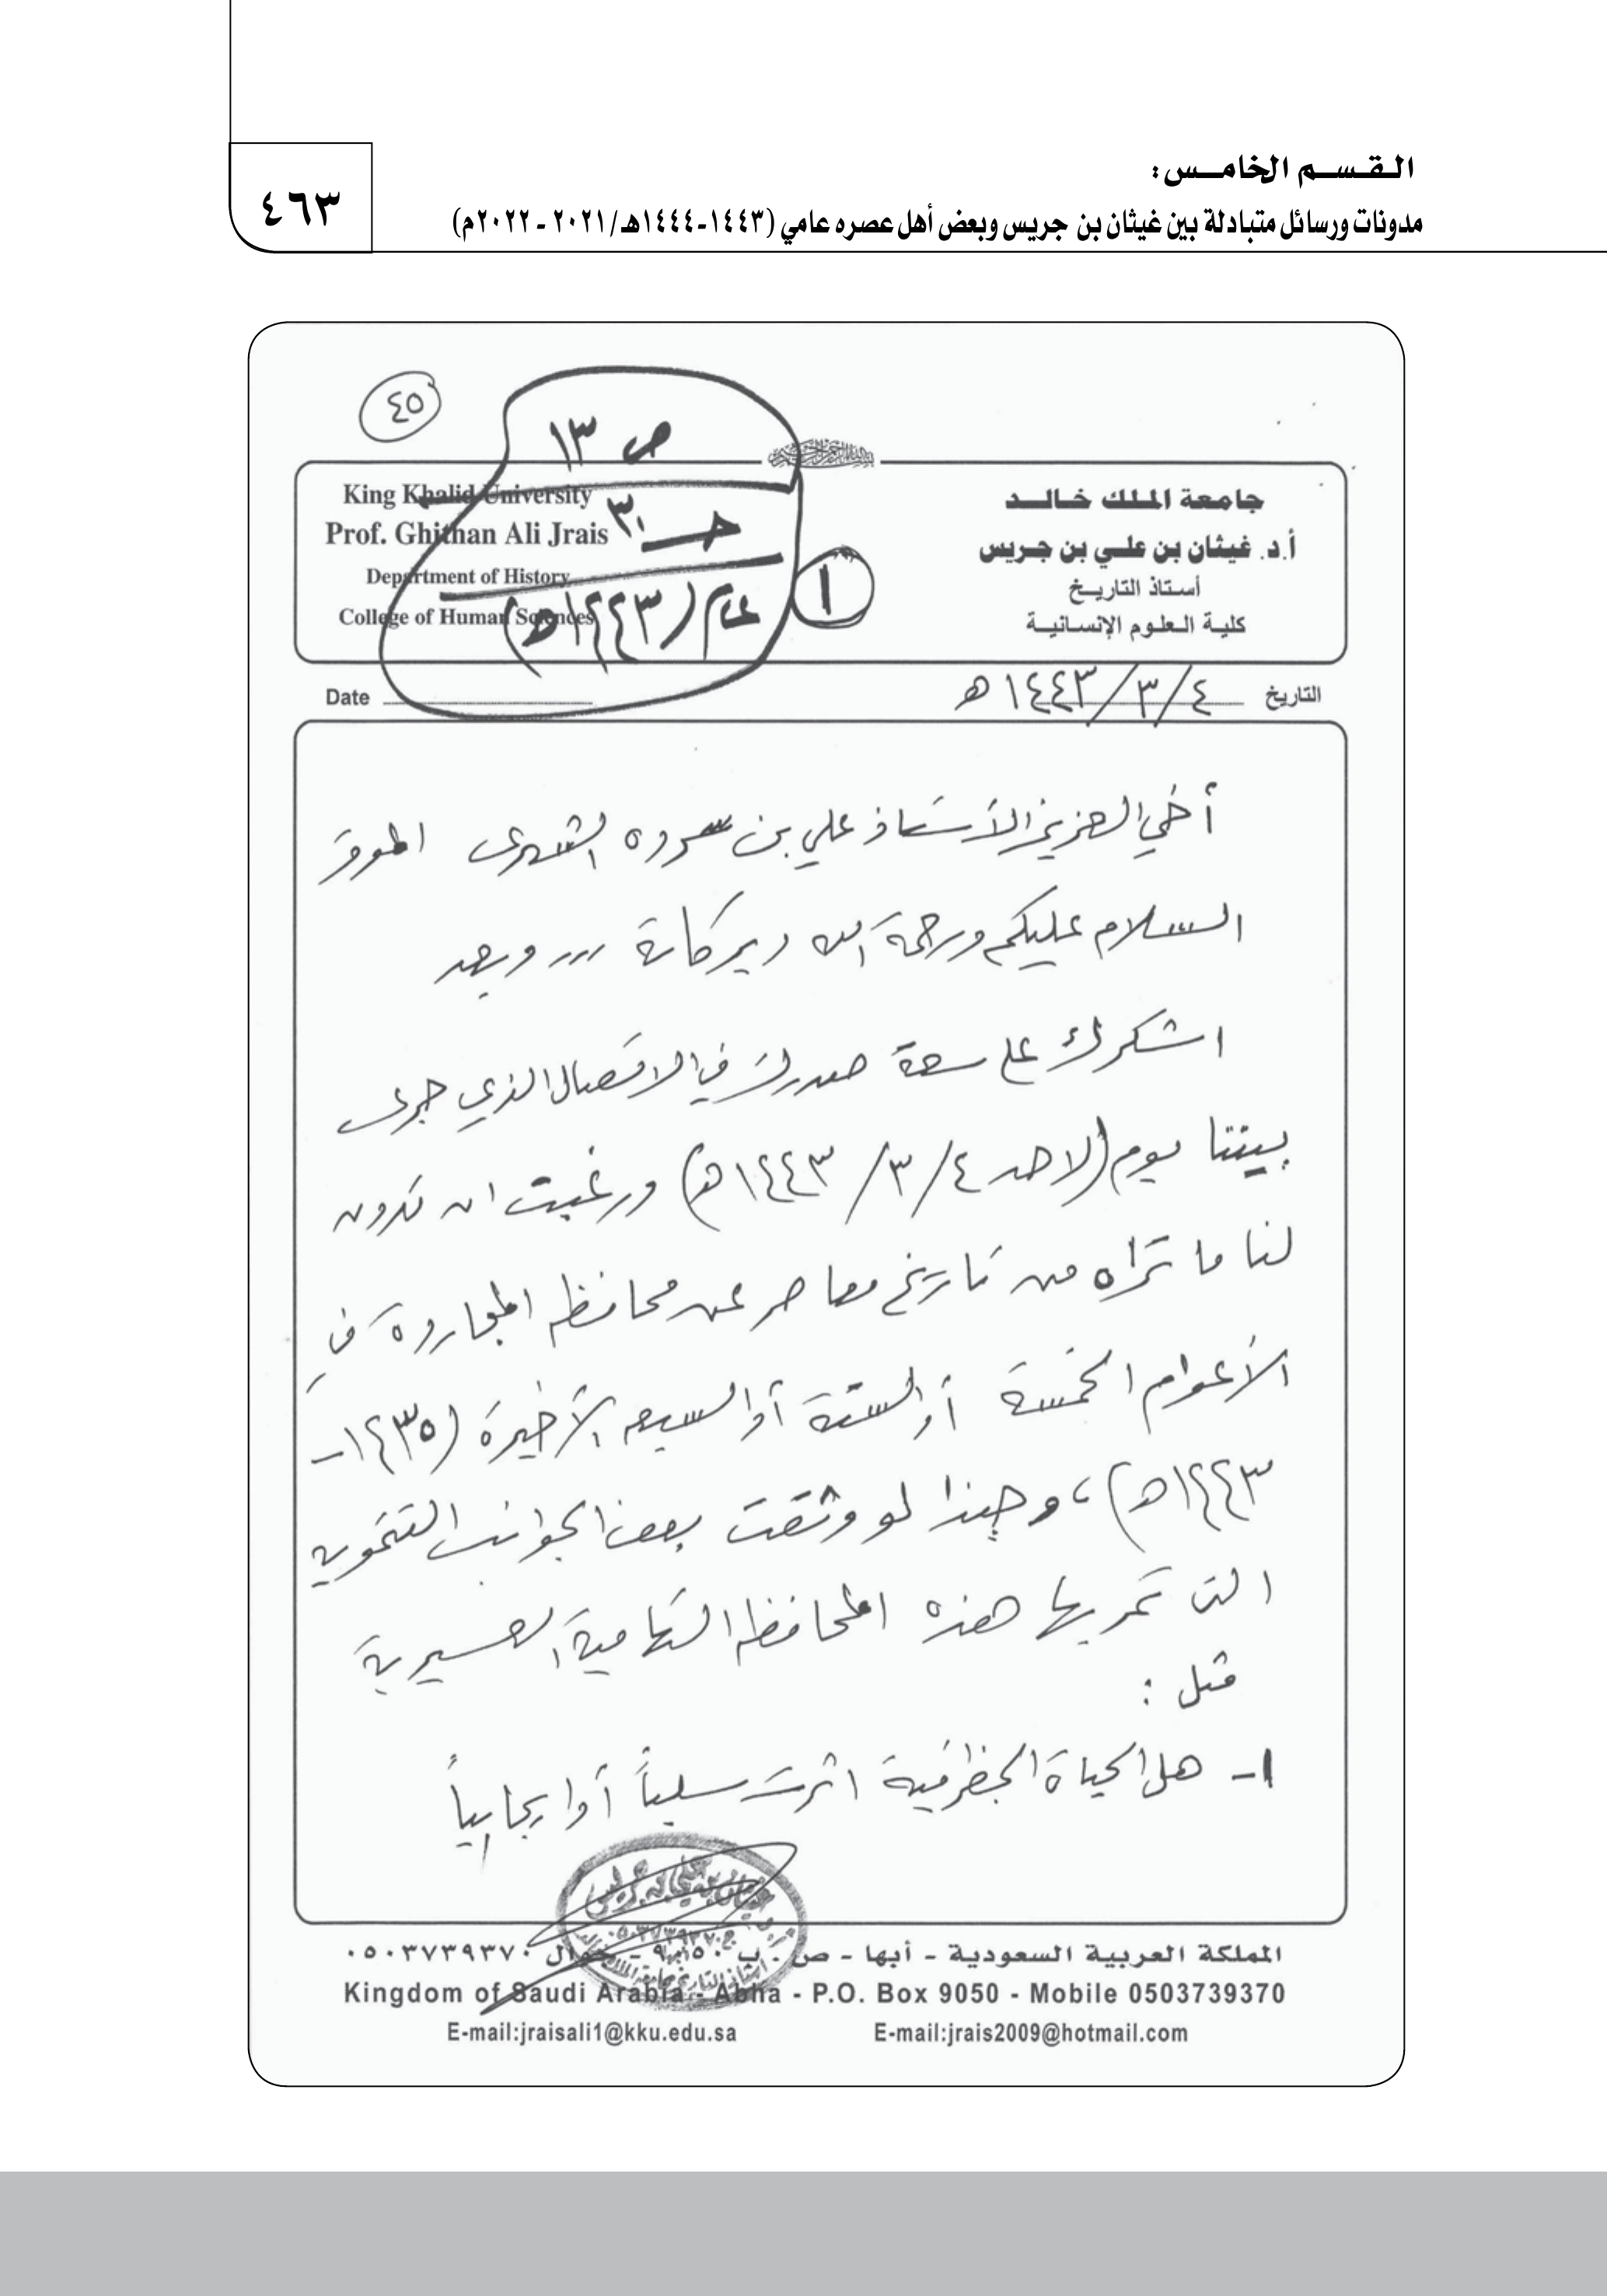 القسم الخامس:
مدونات ورسائل متبادلة بين غيثان بن جريس وبعض أهل عصره عامي (١٤٤٣-١٤٤٤هـ/٢٠٢١ - ٢٠٢٢م)
٤٦٣
٤٥
ص ١٣
جـ ٣٠
عام (١٤٤٣هـ)
١
جامعة الملك خالد
أ.د. غيثان بن علي بن جريس
أستاذ التاريخ
كلية العلوم الإنسانية
King Khalid University
Prof. Ghithan Ali Jrais
Department of History
College of Human Sciences
التاريخ ٤/٣/١٤٤٣هـ
Date
أخي العزيز الأستاذ علي بن سدوده الشهري الموقر
السلام عليكم ورحمة الله وبركاته ,,, وبعد
اشكرك على سعة صدرك في الاتصال الذي جرى
بيننا يوم (الاحد ٤/٣/١٤٤٣هـ) ورغبت ان تدون
لنا ما تراه من تاريخ معاصر عن محافظة المجاردة في
الأعوام الخمسة أو الستة أو السبعه الأخيرة (١٤٣٥-
١٤٤٣هـ)، وحبذا لو وثقت بعض الجوانب التنموية
التي تمر بها هذه المحافظة التهامية العسيرية
مثل :
١- هل الحياة الجغرافية اثرت سلبياً أو ايجابياً
المملكة العربية السعودية - أبها - ص . ب ٩٠٥٠ - جوال ٠٥٠٣٧٣٩٣٧٠
Kingdom of Saudi Arabia - Abha - P.O. Box 9050 - Mobile 0503739370
E-mail:jraisali1@kku.edu.sa E-mail:jrais2009@hotmail.com